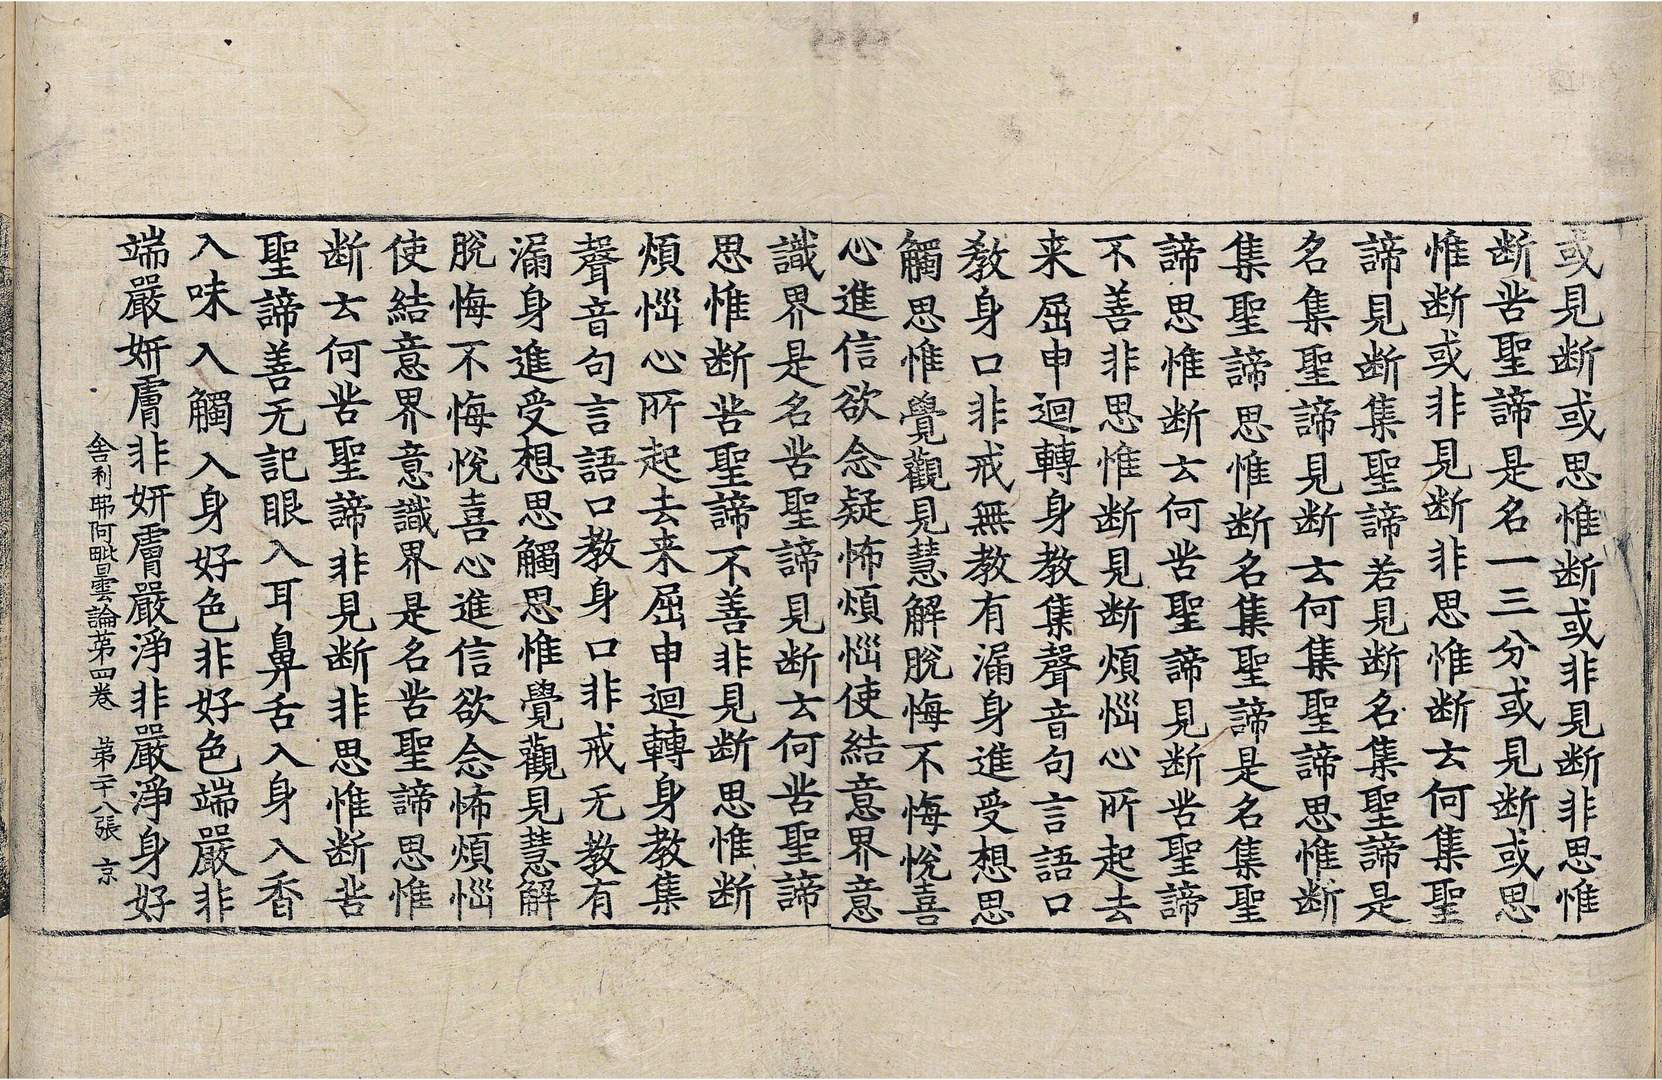 或見断或思惟断或非見断非思惟
断苦聖諦是名一三分或見断或思
惟断或非見断非思惟断云何集聖
諦見断集聖諦若見断名集聖諦是
名集聖諦見断云何集聖諦思惟断
集聖諦思惟断名集聖諦是名集聖
諦思惟断云何苦聖諦見断苦聖諦
不善非思惟断見断煩惱心所起去
来屈申迴轉身教集聲音句言語口
教身口非戒無教有漏身進受想思
觸思惟覺觀見慧解脫悔不悔悅喜
心進信欲念疑怖煩惱使結意界意
識界是名苦聖諦見断云何苦聖諦
思惟断苦聖諦不善非見断思惟断
煩惱心所起去来屈申迴轉身教集
聲音句言語口教身口非戒无教有
漏身進受想思觸思惟覺觀見慧解
脫悔不悔悅喜心進信欲念怖煩惱
使結意界意識界是名苦聖諦思惟
断云何苦聖諦非見断非思惟断苦
聖諦善无記眼入耳鼻舌入身入香
入味入觸入身好色非好色端嚴非
端嚴妍膚非妍膚嚴淨非嚴淨身好
舍利弗阿毗曇論第四卷 第二十八張 京